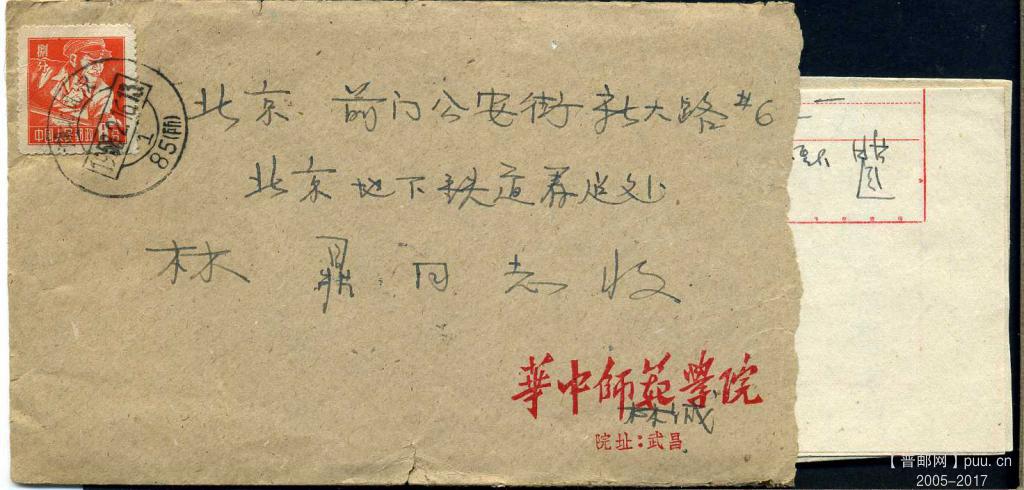 捌分
中国人民邮政
85(所)
北京 前门公安街新大路#6
北京地下铁道筹建处
林鼎同志收
華中師範學院
林诚
院址:武昌
【普邮网】puu.cn
2005-2017